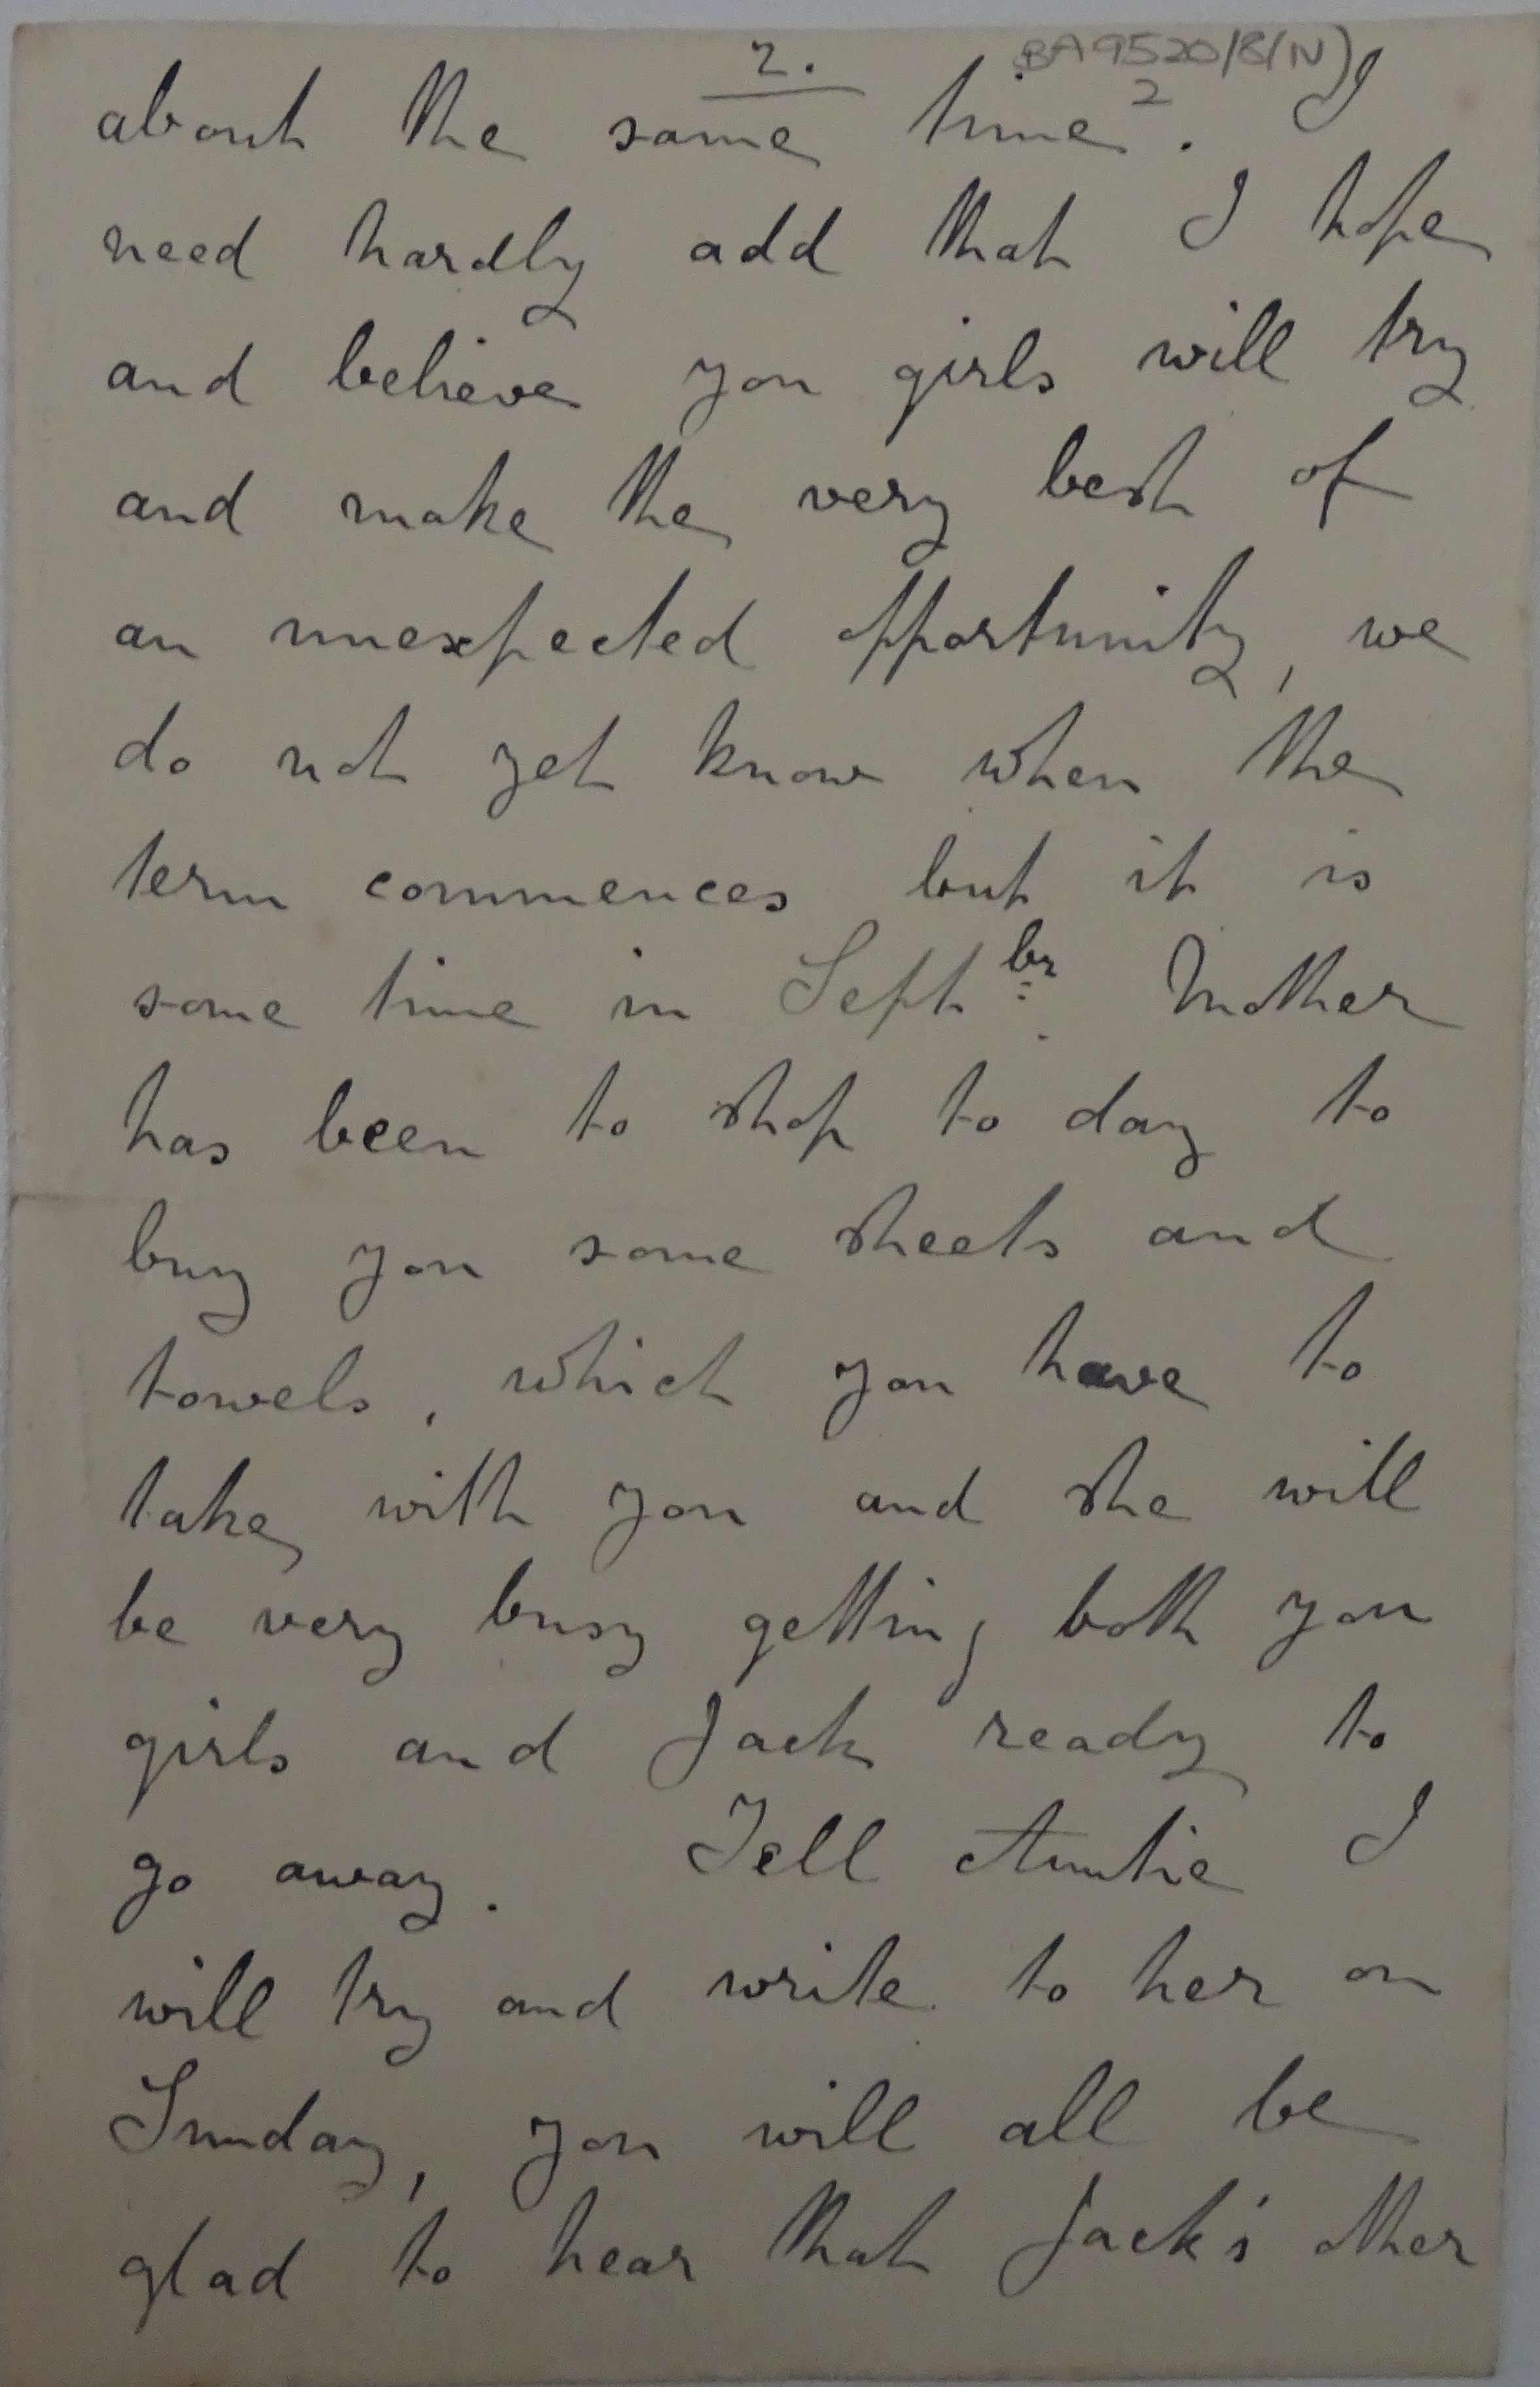 2. BA9520/8(N)
2
about the same time. I
need hardly add that I hope
and believe you girls will try
and make the very best of
an unexpected opportunity, we
do not yet know when the
term commences but it is
some time in Septbr. Mother
has been to shop to day to
buy you some sheets and
towels, which you have to
take with you and she will
be very busy getting both you
girls and Jack ready to
go away. Tell Auntie I
will try and write to her on
Sunday, you will all be
glad to hear that Jack's other